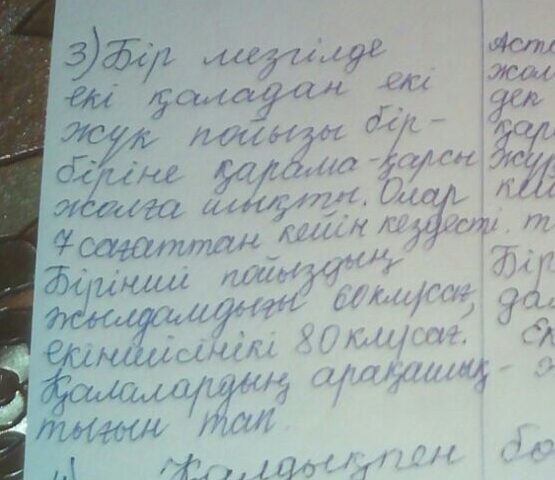 3) Бір мезгілде
екі қаладан екі
жүк пойызы бір-
біріне қарама-қарсы
жолға шықты. Олар
7 сағаттан кейін кездесті.
Бірінші пойыздың
жылдамдығы 60 км/сағ,
екіншісінікі 80 км/сағ.
Қалалардың арақашық-
тығын тап.
Қалдықпен бо
Аст
жол
дек
қар
жүр
кей
т
Бір
да
Ек